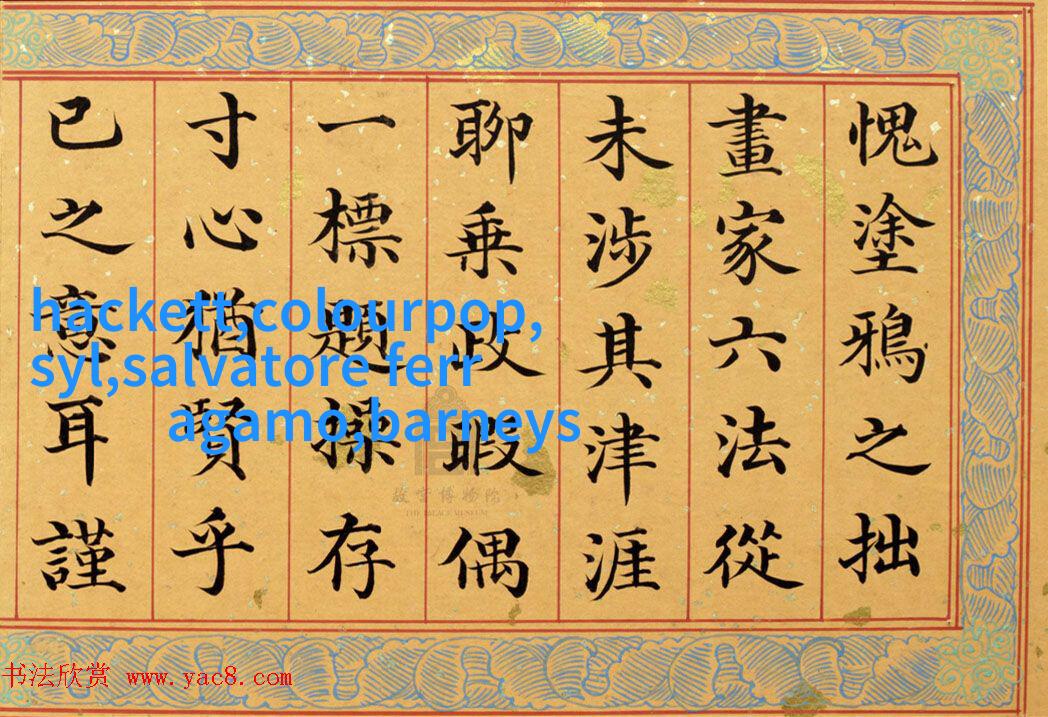 愧塗鴉之拙
畫家六法從
未涉其津涯
聊乘政暇偶
一標題操存
寸心猶賢乎
已之意耳謹
hackett,colourpop,
syl,salvatore ferr
agamo,barneys
故宫博物院
THE PALACE MUSEUM
书法欣赏 www.yac8.com